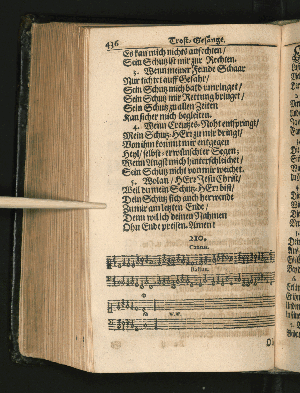 436 Trost-Gesänge.
Es kan mich nichts anfechten/
Sein Schutz ist mir zur Rechten.
3. Wenn meiner Feinde Schaar
Nur ist auff Gefahr/
Sein Schutz mich bald umringet/
Sein Schutz mir Rettung bringet/
Sein Schutz zu allen Zeiten
Kan sicher mich begleiten.
4. Wenn Creutzes-Noht entspringt/
Mein Schutz-HErr zu mir dringt/
Von ihm kommt mir entgegen
Heyl/ selbst-erwünschter Segen;
Wenn Angst mich hinterschleichet/
Sein Schutz nicht von mir weichet.
5. Wolan/ HErr Jesu Christ/
Weil du mein Schutz-HErr bist/
Dein Schutz sich auch herwende
Zu mir am letzten Ende/
Denn wil ich deinen Nahmen
Ohn Ende preisen. Amen!
210.
Cantus.
Bassus.